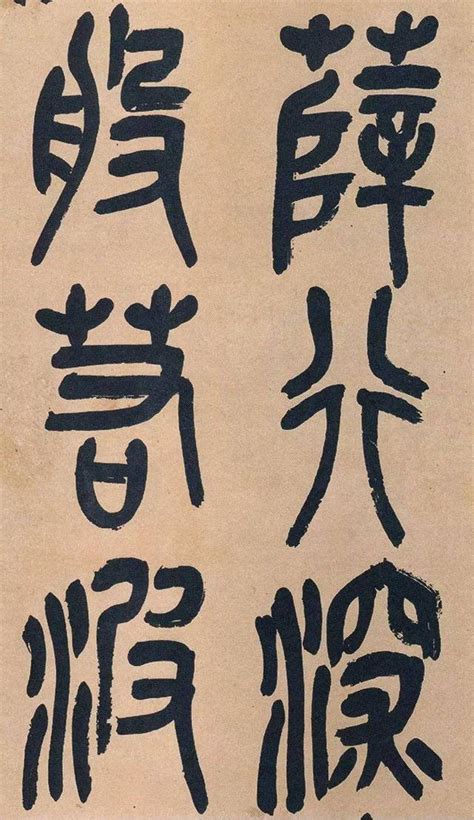 薛行深
般若波